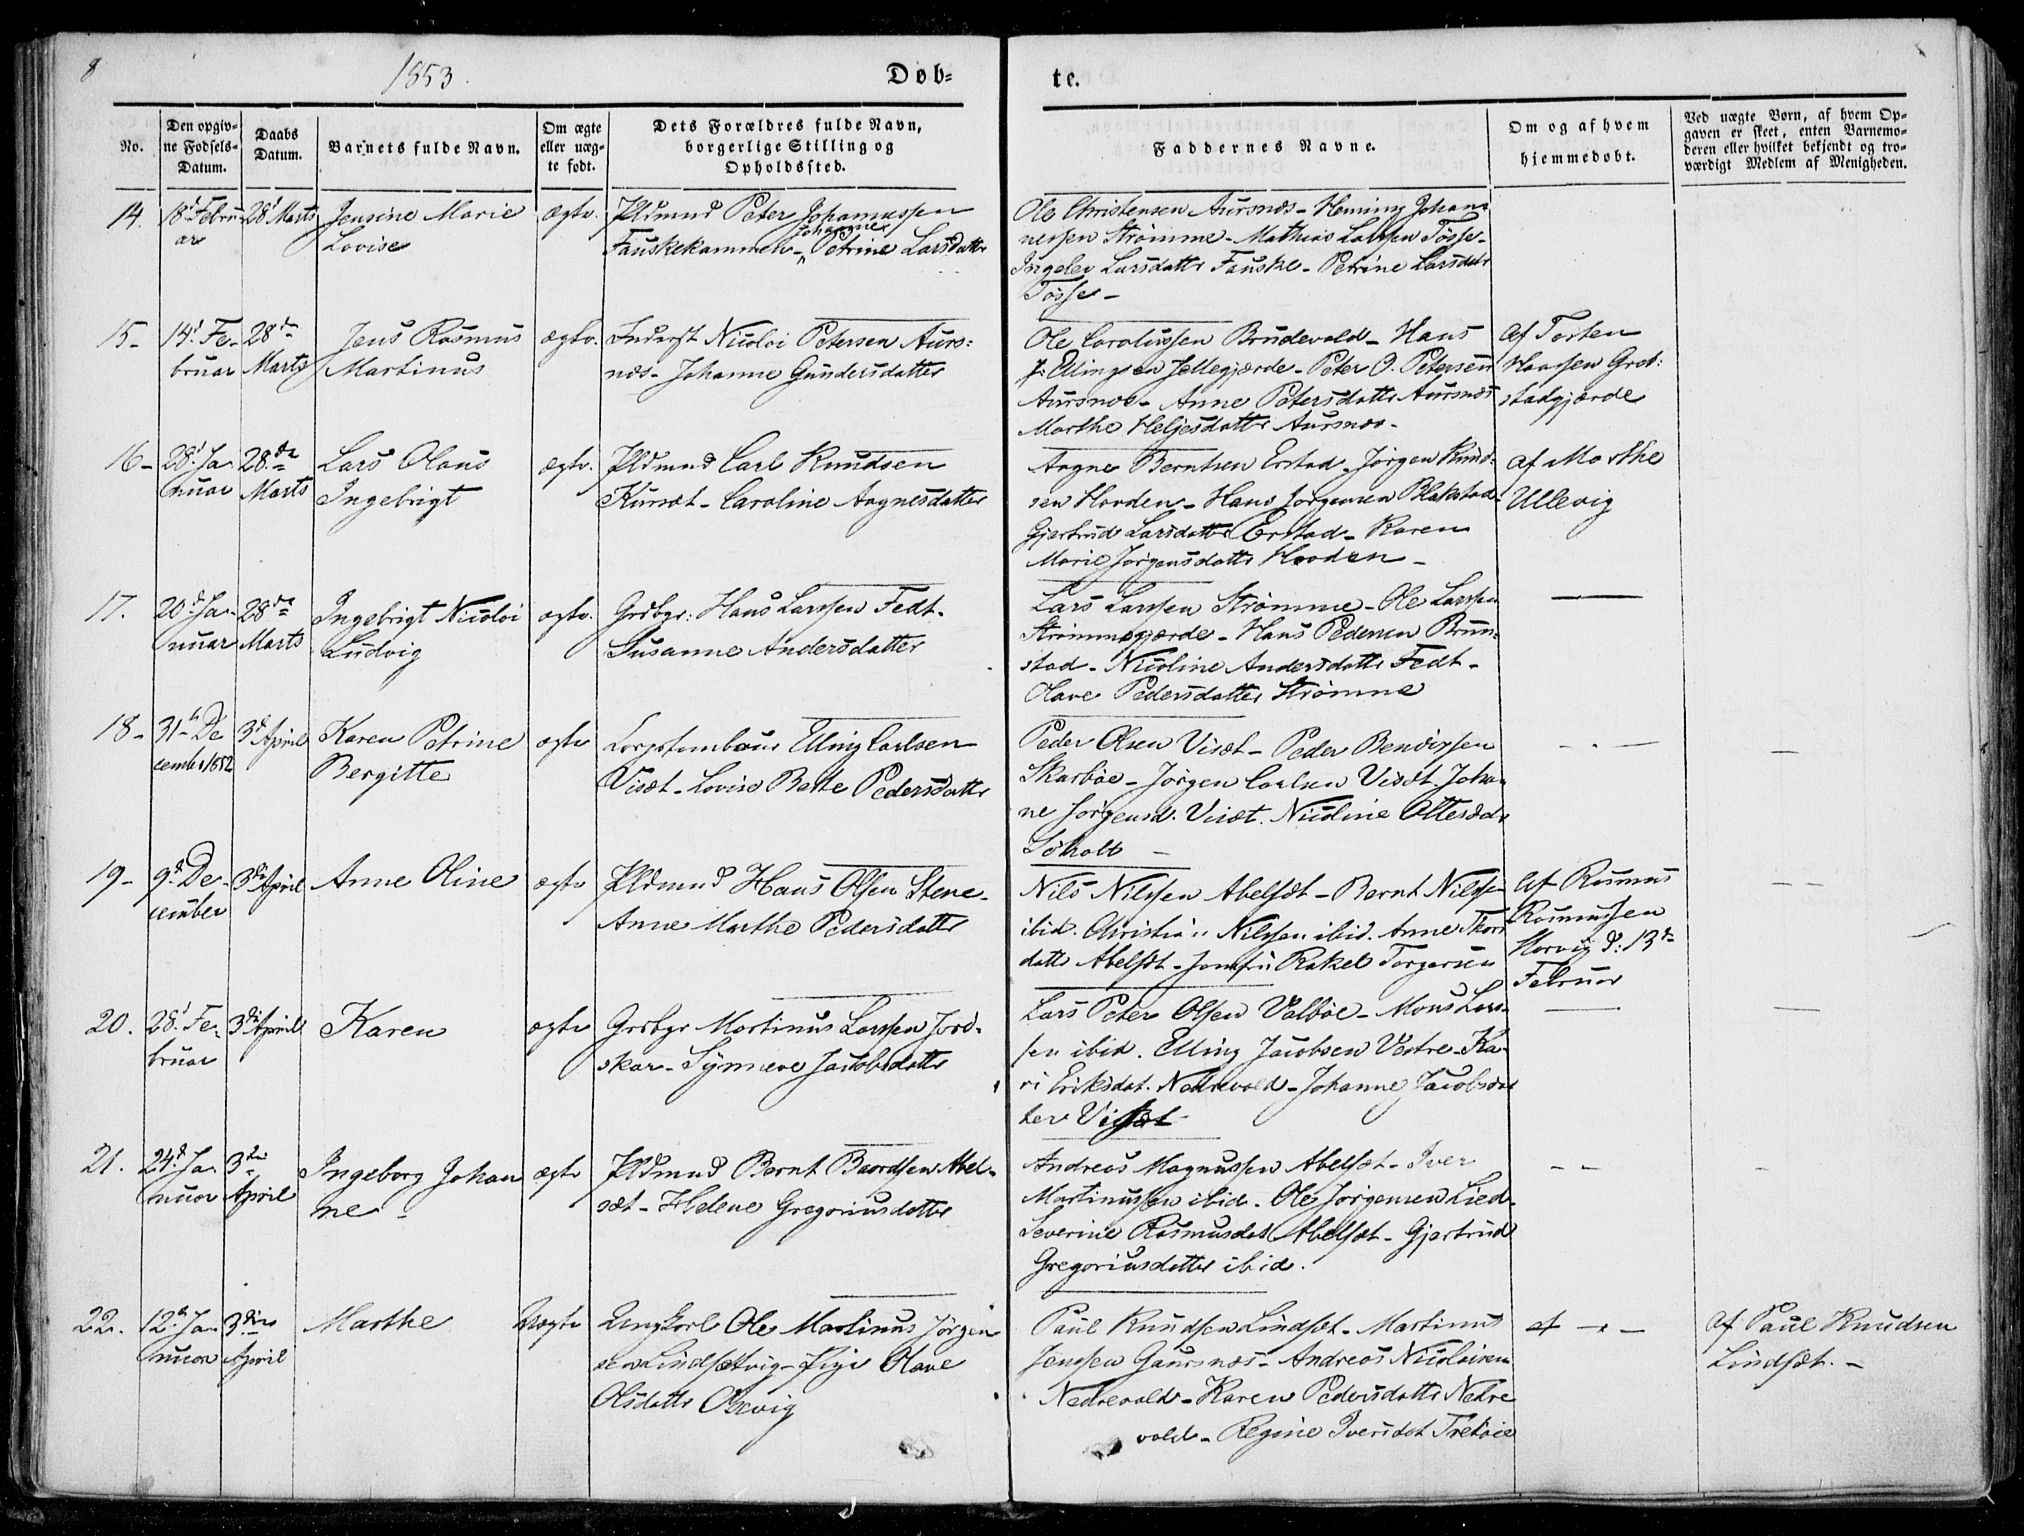 8
1853.
Døb-
te.
No.
Den opgiv-
ne Fødsels-
Datum.
Daabs
Datum.
Barnets fulde Navn.
Om ægte
eller uæg-
te født.
Dets Forældres fulde Navn,
borgerlige Stilling og
Opholdssted.
Faddernes Navne.
Om og af hvem
hjemmedøbt.
Ved uægte Børn, af hvem Op-
gaven er skeet, enten Barnemo-
deren eller hvilket bekjendt og tro-
værdigt Medlem af Menigheden.
14.
18d Febru
ar
28d Marts
Jensine Marie
Lovise
ægte.
Pldmnd Peter Johannessen
Johanne
Fauskekammen - Petrine Larsdatter
Ole Christensen Aursnæs - Heming Johan-
nessen Strømme - Mathias Larssen Tösse-
Ingelev Larsdatter Fauske - Petrine Larsdatr
Tösse -
15-
14d Fe-
bruar
28de
Marts
Jens Rasmus
Martinus
ægte.
Inderst Nicolai Petersen Aurs-
næs - Johanne Gundersdatter
Ole Carolussen Brudevold - Hans
P. Ellingsen Jellegjærde - Peter O. Petersen
Aursnæs - Anne Petersdatter Aursnæs
Marthe Heljesdatter Aursnæs -
Af Torsten
Hanssen Grot-
stadgjærde
16-
28d Ja-
nuar
28de
Marts
Lars Olaus
Ingebrigt
ægte.
Pldmnd Carl Knudsen
Kursæt - Caroline Aagnesdatter
Aagne Berntsen Erstad - Jørgen Knud-
sen Hovden - Hans Jørgensen Blakstad
Gjertrud Larsdatter Erstad - Karen
Marie Jørgensdatter Hovden -
af Marthe
Ullevig
17.
20d Ja-
nuar
28de
Marts
Ingebrigt Nicolai
Ludvig
ægte.
Grdbgr: Hans Larssen Fedt-
Susanne Andersdatter
Lars Larssen Strømme - Ole Larssen
Strømmegjærde - Hans Pedersen Brun-
stad - Nicoline Andersdatter Fedt -
Olave Pedersdatter Strømme
18-
31te De
cember 1852
3d April
Karen Petrine
Bergitte
ægte
Elling Carlsen
Visæt - Lovise Bette Pedersdatter
Peder Olsen Visæt - Peder Bendixsen
Skarbøe - Jörgen Carlsen Visæt Johan
ne Jörgensd. Visæt. Nicoline Ottesdatr
Söholt -
19-
9de De-
cember
3de April
Anne Oline
ægte
Pldmnd Hans Olsen Stene-
Anne Marthe Pedersdatter
Nils Nilssen Abelsæt - Bernt Nilssen
ibid. Christian Nilssen ibid. Anne Thors
datter Abelsæt - Jomfru Rakel Torgersen
Af Rasmus
Rasmussen
Morvig d: 13de
Februar
20.
28d Fe-
bruar
3die April
Karen
ægte
Grdbgr Martinus Larssen Jord-
skar - Synneve Jacobsdatter
Lars Peter Olsen Valböe - Mons Lars-
sen ibid. Elling Jacobsen Vestre - Ka-
ri Eriksdat. Nedrevold - Johanne Jacobsdat
ter Visæt
21.
24d Ja-
nuar
3die
April
Ingeborg Johan
ne -
ægte
Pldmnd Bernt Baardsen Abel-
sæt - Helene Gregoriusdatter
Andreas Magnussen Abelsæt - Iver
Martinussen ibid. Ole Jørgensen Lied-
Severine Rasmusdat Abelsæt - Gjertrud
Gregoriusdatter ibid.
22.
12te Ja-
nuar
3die
April
Marthe
Uægte
Ungkarl Ole Martinus Jörgen
sen Lindsætvig - Pige Olave
Olsdatter Oxevig
Paul Knudsen Lindsæt - Martinus
Jenssen Gaursnæs - Andreas Nicolaisen
Nedrevold - Karen Pedersdatter Nedre
vold - Regine Iversdat Tretöie
af Paul Knudsen
Lindsæt. -